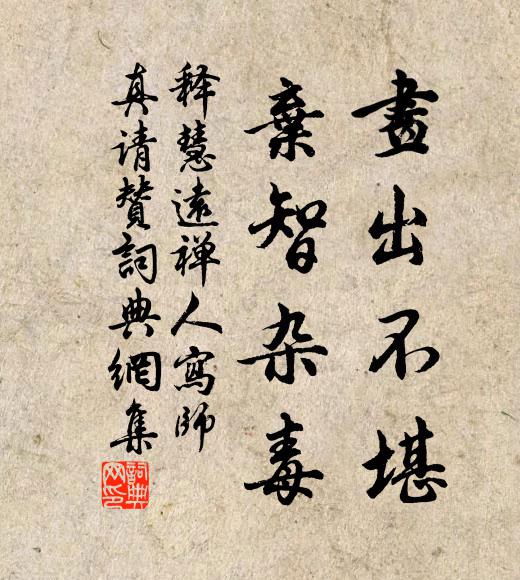 畫出不堪
棄智杂毒
释慧遠禅人寫師
真请赞詞典網集
詞典网印